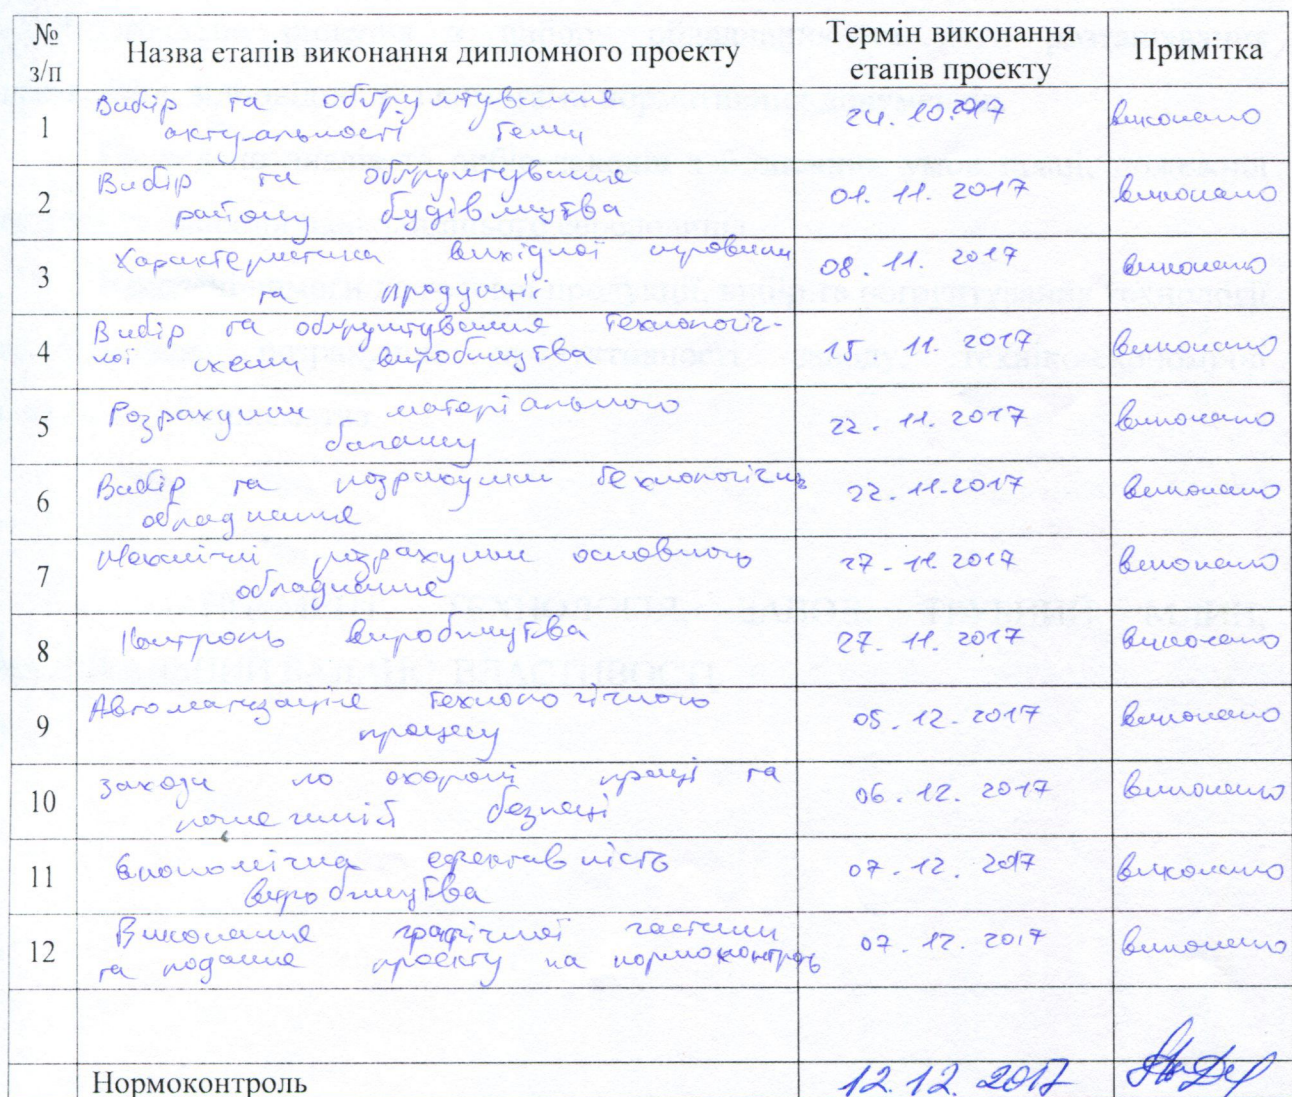 №
з/п
Назва етапів виконання дипломного проекту
Термін виконання
етапів проекту
Примітка
1
Вибір та обґрунтування
актуальності теми
24.10.2017
виконано
2
Вибір та обґрунтування
району будівництва
01.11.2017
виконано
3
Характеристика вихідної сировини
та продукції
08.11.2017
виконано
4
Вибір та обґрунтування технологіч-
ної схеми виробництва
15.11.2017
виконано
5
Розрахунки матеріального
балансу
22.11.2017
виконано
6
Вибір та розрахунки
обладнання
22.11.2017
виконано
7
Механічні розрахунки основного
обладнання
27.11.2017
виконано
8
Контроль виробництва
27.11.2017
виконано
9
Автоматизація технологічного
процесу
05.12.2017
виконано
10
Заходи по охороні праці та
пожежній безпеці
06.12.2017
виконано
11
Економічна ефективність
виробництва
07.12.2017
виконано
12
Виконання графічної частини
та подання проекту на нормоконтроль
07.12.2017
виконано
Нормоконтроль
12.12.2017